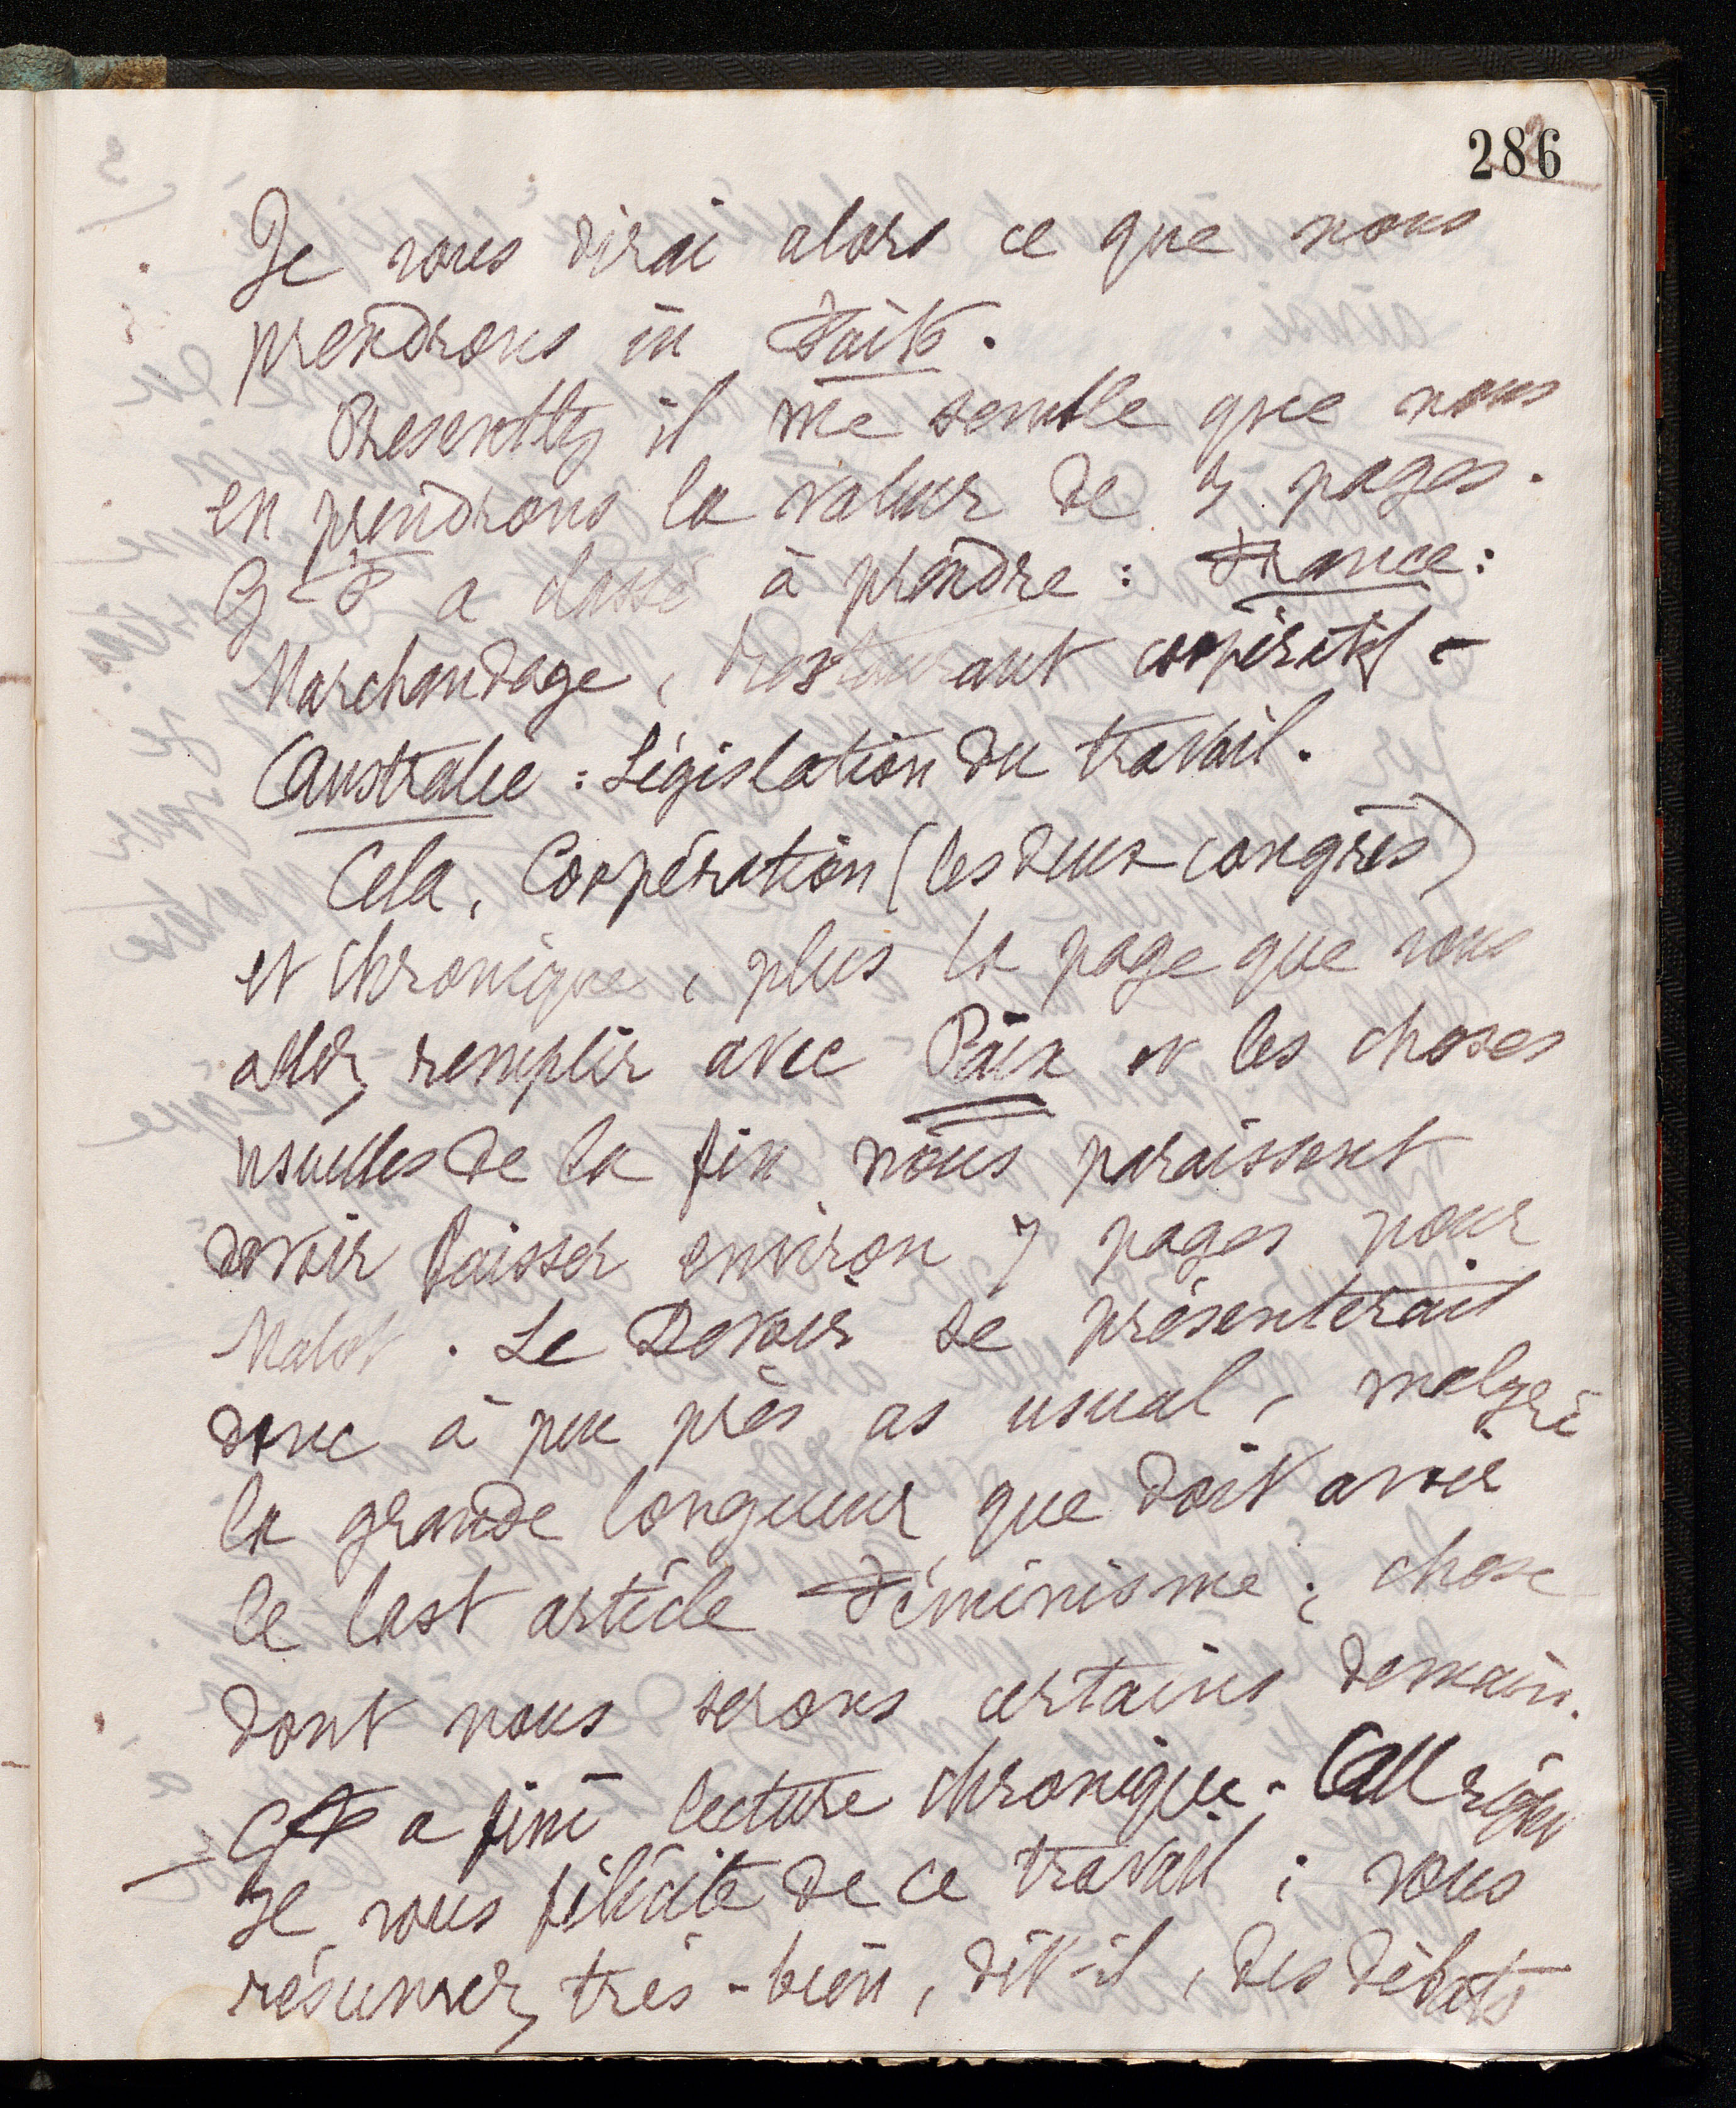 286
Je vous dirai alors ce que nous
prendrons in Faits.
Presently il me semble que nous
en prendrons la valeur de 5 pages.
a classé à prendre : France :
Marchandage, Restaurant coopératif -
Australie : Législation du travail.
Cela, Coopération (les deux congrès)
et chronique, plus la page que vous
allez remplir avec Paix et les choses
usuelles de la fin nous paraissent
devoir laisser environ 7 pages pour
Malot. Le Devoir se présenterait
donc à peu près as usual, malgré
la grande longueur que doit avoir
le last article Féminisme ; chose
dont nous serons certains demain.
a fini lecture chronique - All right
Je vous félicite de ce travail ; vous
résumez très-bien, dit-il, des débats